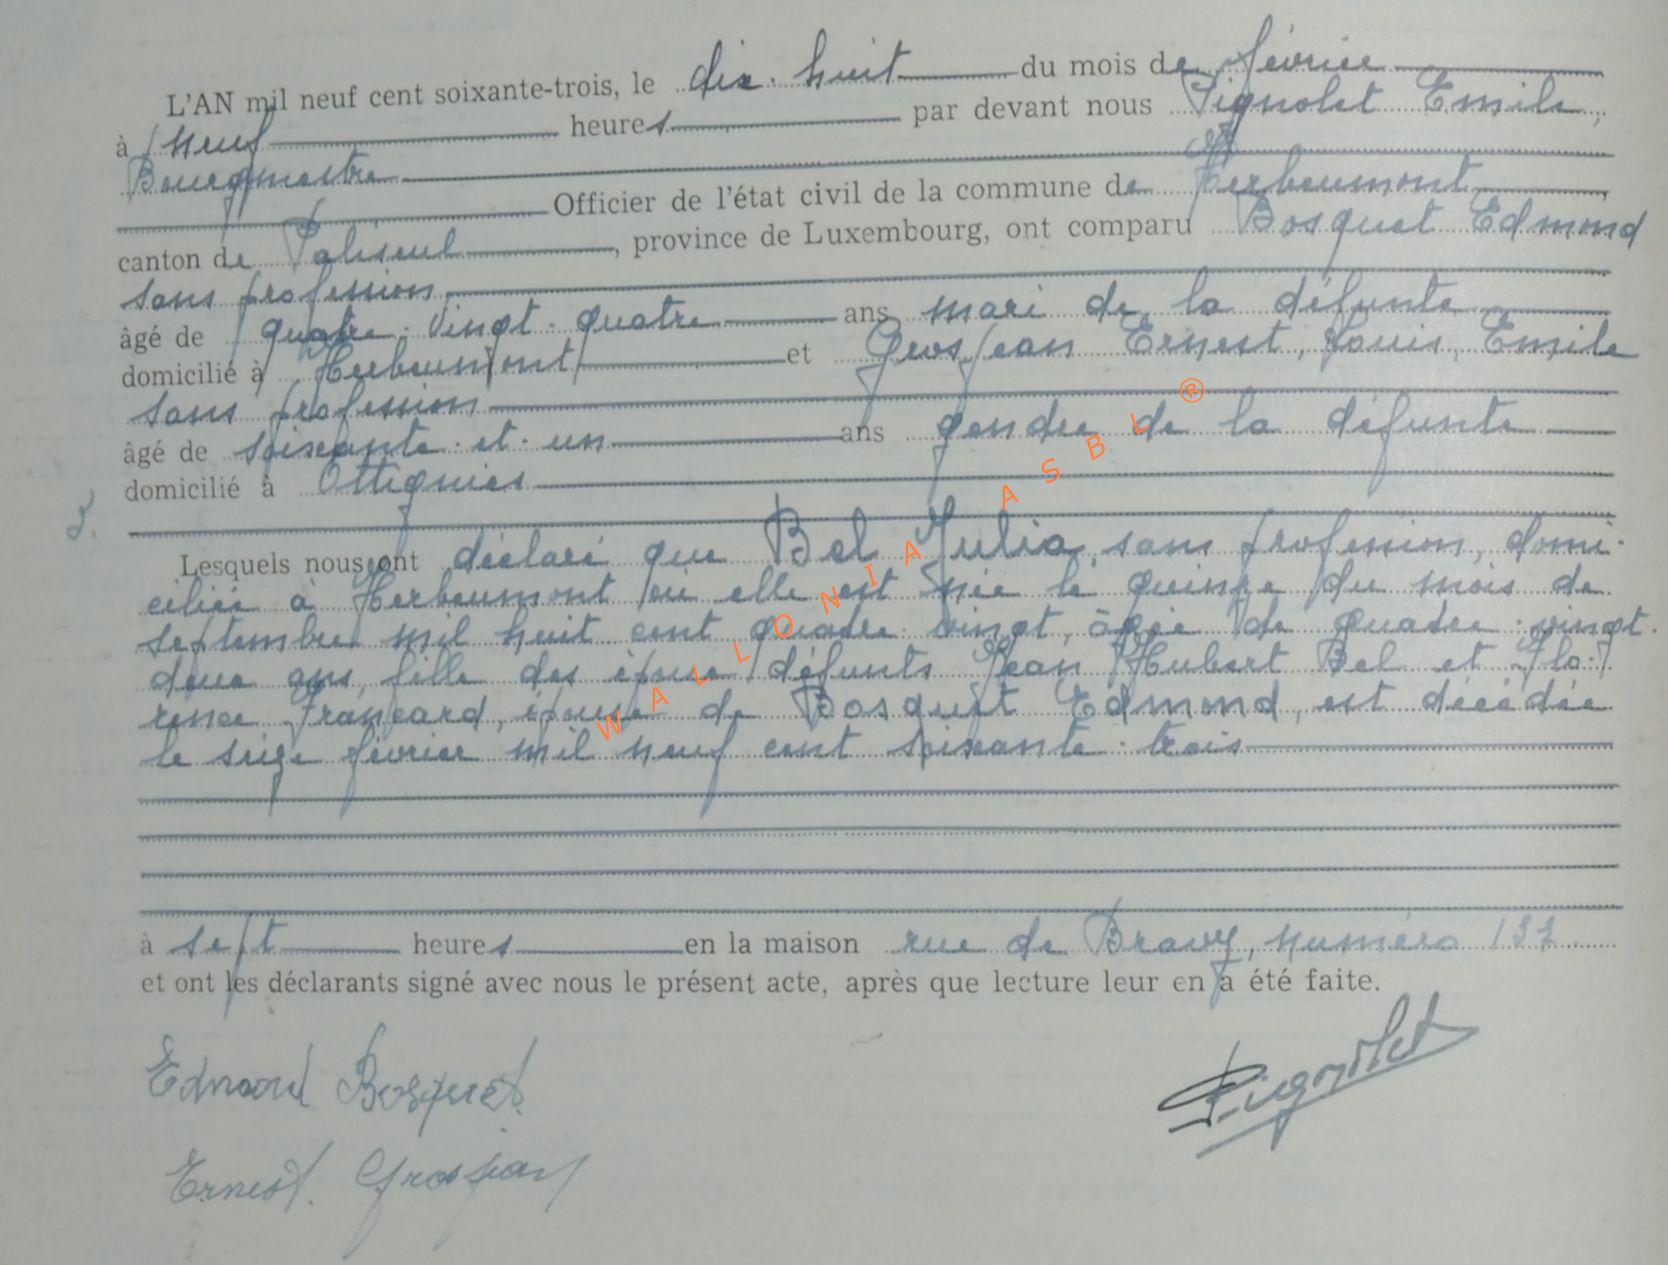 L'AN mil neuf cent soixante-trois, le dix-huit du mois de février
à neuf heures par devant nous Pignolet Emile,
Bourgmestre
Officier de l'état civil de la commune de Herbeumont,
canton de Paliseul, province de Luxembourg, ont comparu Bosquet Edmond
sans profession,
âgé de quatre-vingt-quatre ans mari de la défunte
domicilié à Herbeumont et Grosjean Ernest, Louis, Emile
sans profession
âgé de soixante-et-un ans gendre de la défunte
domicilié à Ottignies
5.
Lesquels nous ont déclaré que Bel Julia, sans profession, domi-
ciliée à Herbeumont où elle est née le quinze du mois de
septembre mil huit cent quatre-vingt, âgée de quatre-vingt-
deux ans, fille des époux défunts Jean Hubert Bel et Flo-
rence Françard, épouse de Bosquet Edmond, est décédée
le seize février mil neuf cent soixante-trois
à sept heures en la maison rue de Bravy, numéro 132
et ont les déclarants signé avec nous le présent acte, après que lecture leur en a été faite.
Edmond Bosquet
Pignolet
Ernest Grosjean
WALLONIA ASBL ®